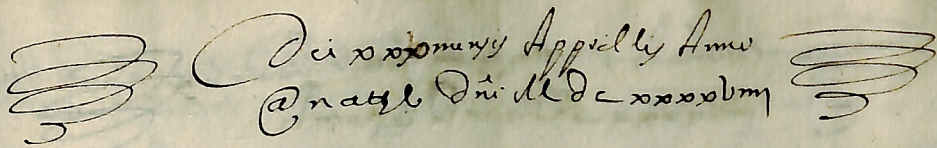 Die xxx mensis Apprillis Anno
@ natle Dñi M dc xxxxviiii